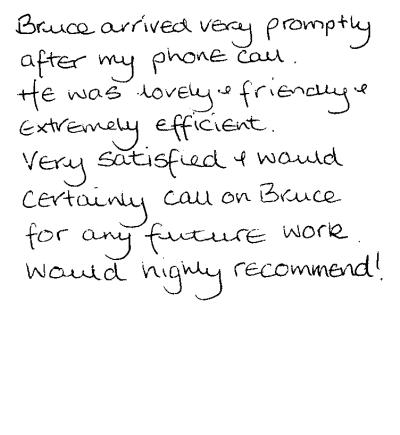 Bruce arrived very promptly
after my phone call.
He was lovely & friendly &
extremely efficient.
Very satisfied & would
certainly call on Bruce
for any future work.
Would highly recommend!